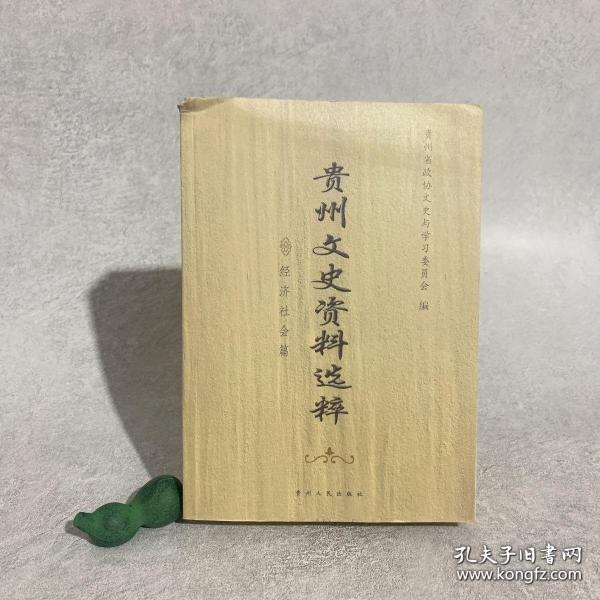 贵州省政协文史与学习委员会 编
贵州文史资料选粹
经济社会篇
贵州人民出版社
孔夫子旧书网
www.kongfz.com